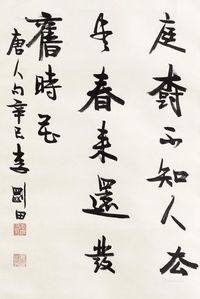 庭樹不知人去
尽春来還發
舊時花
唐人句辛巳李剛田